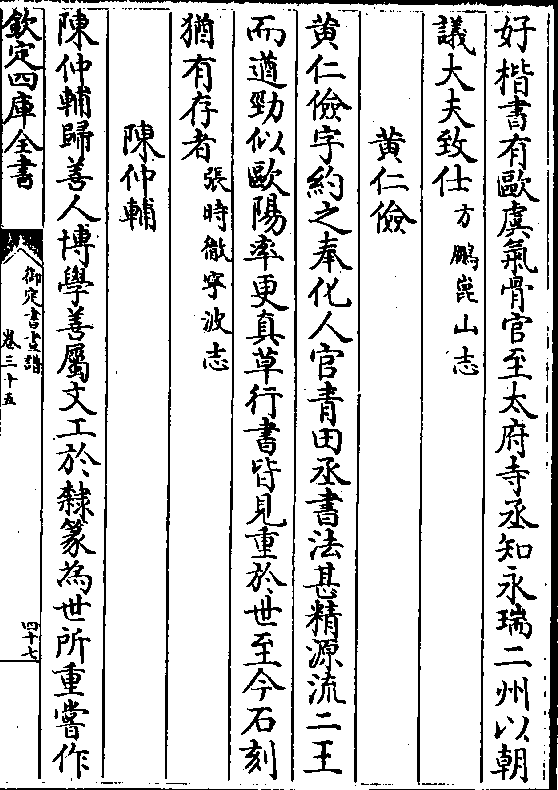 好楷書有歐虞氣骨官至太府寺丞知永瑞二州以朝
議大夫致仕方鵬崑山志
黄仁儉
黄仁儉字約之奉化人官青田丞書法甚精源流二王
而遒勁似歐陽率更真草行書皆見重於世至今石刻
猶有存者張時徹寧波志
陳仲輔
陳仲輔歸善人博學善屬文工於隸篆為世所重嘗作
欽定四庫全書
御定書畫譜
卷三十五
四十七